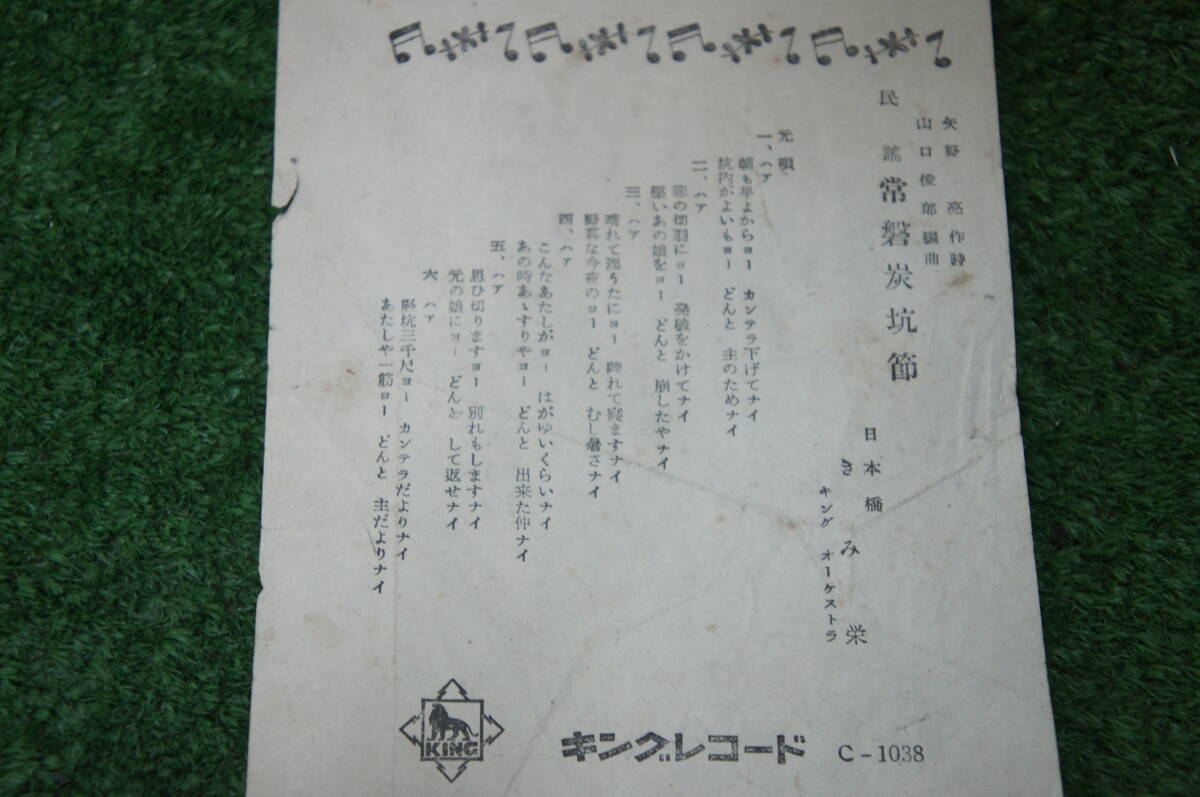 矢野 亮作詩
山口俊郎編曲
民謡 常磐炭坑節
日本橋 きみ栄
キング オーケストラ
元唄
一、ハア
朝も早よからヨー カンテラ下げてナイ
坑内かよいもヨー どんと 主のためナイ
二、ハア
恋の切羽にヨー 発破をかけてナイ
堅いあの娘をヨー どんと 崩したやナイ
三、ハア
晴れて逢うたにヨー 離れて寝ますナイ
野暮な今夜のヨー どんと むし暑さナイ
四、ハア
こんなあたしがヨー はがゆいくらいナイ
あの時あゝすりやヨー どんと 出来た仲ナイ
五、ハア
思ひ切りますヨー 別れもしますナイ
元の娘にヨー どんと して返せナイ
六、ハア
竪坑三千尺ヨー カンテラだよりナイ
あたしや一筋ヨー どんと 主だよりナイ
KING
キングレコード C-1038